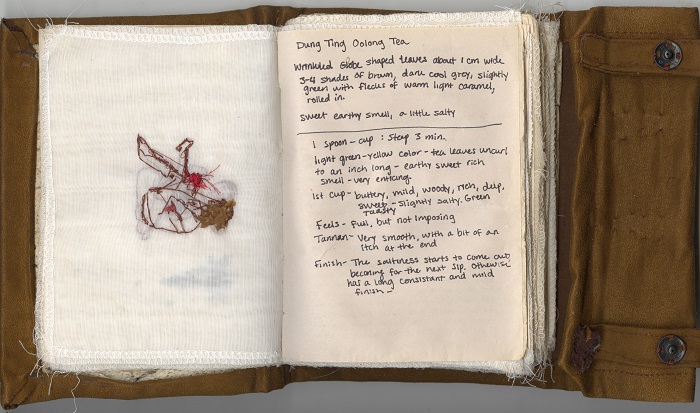 Dung Ting Oolong Tea
Wrinkled Globe shaped leaves about 1 cm wide
3-4 shades of brown, dark cool grey, slightly
green with flecks of warm light caramel,
rolled in.
Sweet earthy smell, a little salty
1 spoon - cup : Steep 3 min.
light green-yellow color - tea leaves uncurl
to an inch long - earthy sweet rich
smell - very enticing.
1st cup - buttery, mild, woody, rich, deep,
sweet - slightly salty. Green
toasty
Feels - Full, but not imposing
Tannan - Very smooth, with a bit of an
itch at the end
Finish - The saltiness starts to come out,
beconing for the next sip, otherwise
has a long consistant and mild
finish -